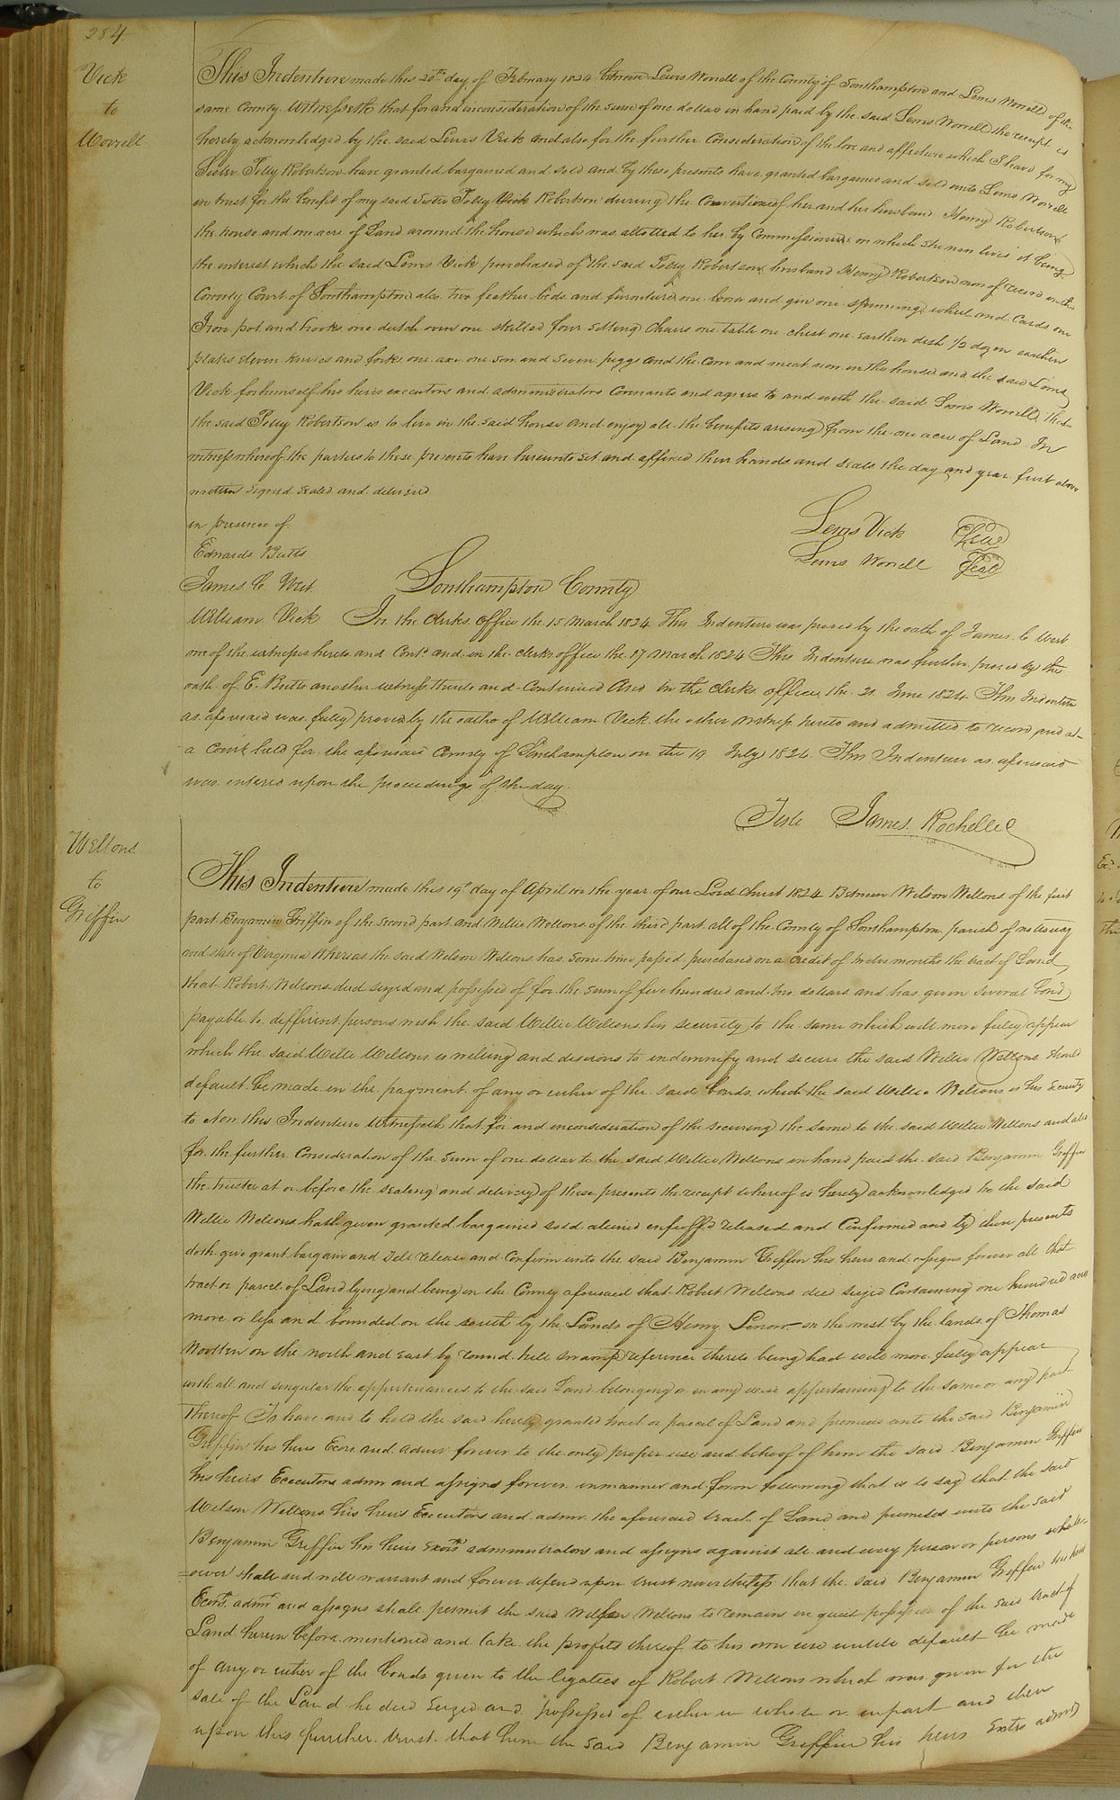 284
Vick
to
Worrell
This Indenture made this 20th day of February 1824 between Lewis Worrell of the County of Southampton and Lewis Worrell of the
same County Witnesseth that for and in consideration of the sum of one dollar in hand paid by the said Lewis Worrell the receipt is
hereby acknowledged by the said Lewis Vick and also for the further Consideration of the love and affection which I have for my
Sister Polly Robertson have granted bargained and sold and by these presents have granted bargained and sold unto Lewis Worrell
in trust for the benefit of my said Sister Polly Vick Robertson during the Covertion of her and her husband Henry Robertson
the house and one acre of Land around the house which was allotted to her by Commissioners on which she now lives it being
the interest which the said Lewis Vick purchased of the said Polly Robertsons husband Henry Robertson now of record in the
County Court of Southampton also two feather beds and furniture one and one spinning wheel and Cards one
Iron pot and hooks one dutch oven one skillet four setting chairs one table one chest one Earthen dish 1/2 dozen earthen
plates Eleven knives and forks one axe one sow and seven piggs and the Corn and meat now in the house and the said Lewis
Vick for himself his heirs executors and administrators Covenants and agrees to and with the said Lewis Worrell that
the said Polly Robertson is to live in the said house and enjoy all the benefits arising from the one acre of Land In
witness whereof the parties to these presents have hereunto set and affixed their hands and seals the day and year first above
written signed sealed and delivered
in presence of
Lewis Vick Seal
Edwards Butts
Lewis Worrell Seal
James C West
Southampton County
William Vick In the Clerks office the 15 March 1824 This Indenture was proved by the oath of James C West
one of the witnesses hereto and Contd and in the clerks office the 17 March 1824 This Indenture was further proved by the
oath of E. Butts another witness thereto and Continued And in the Clerks office the 21 June 1824 This Indenture
as aforesaid was fully proved by the oath of William Vick the other witness hereto and admitted to record and at
a Court held for the aforesaid County of Southampton on the 19 July 1824 This Indenture as aforesaid
was entered upon the proceedings of the day
Teste James Rochelle
Wellons
to
Griffin
This Indenture made this 19th day of April in the year of our Lord Christ 1824 Between Wilson Wellons of the first
part Benjamin Griffin of the second part and Willie Wellons of the third part all of the County of Southampton parish of nottoway
and state of Virginia Whereas the said Wilson Wellons has some time passed purchased on a credit of twelve months the tract of Land
that Robert Wellons died seized and possessed of for the sum of five hundred and two dollars and has given several bonds
payable to different persons with the said Willie Wellons his security to the same which will more fully appear
which the said Willie Wellons is willing and desirous to indemnify and secure the said Willie Wellons should
default be made in the payment of any or either of the said bonds which the said Willie Wellons is his Security
to Now this Indenture Witnesseth that for and in consideration of the securing the same to the said Willie Wellons and also
for the further Consideration of the sum of one dollar to the said Willie Wellons in hand paid the said Benjamin Griffin
the trustee at or before the sealing and delivery of these presents the receipt whereof is hereby acknowledged he the said
Willie Wellons hath given granted bargained sold aliened enfeoffed released and Confirmed and by these presents
doth give grant bargain and sell release and Confirm unto the said Benjamin Griffin his heirs and assigns forever all that
tract or parcel of Land lying and being in the County aforesaid that Robert Wellons died seized Containing one hundred acres
more or less and bounded on the south by the Lands of Henry on the west by the lands of Thomas
Wootten on the north and east by round hill swamp reference thereto being had will more fully appear
with all and singular the appurtenances to the said Land belonging or in any wise appertaining to the same or any part
thereof To have and to hold the said hereby granted tract or parcel of Land and premises unto the said Benjamin
Griffin his heirs Exors and admrs forever to the only proper use and behoof of him the said Benjamin Griffin
his heirs Executors admrs and assigns forever in manner and form following that is to say that the said
Wilson Wellons his heirs Executors and admrs the aforesaid tract of Land and premises unto the said
Benjamin Griffin his heirs Exors administrators and assigns against all and every person or persons whatso
=ever shall and will warrant and forever defend upon trust nevertheless that the said Benjamin Griffin his heirs
Exors admrs and assigns shall permit the said Wilson Wellons to remain in quiet possession of the said tract of
Land herein before mentioned and take the profits thereof to his own use untill default be made
of any or either of the bonds given to the legatees of Robert Wellons which was given for the
sale of the Land he died seized and possessed of either in whole or in part and then
upon this further trust that him the said Benjamin Griffin his heirs Exors admrs